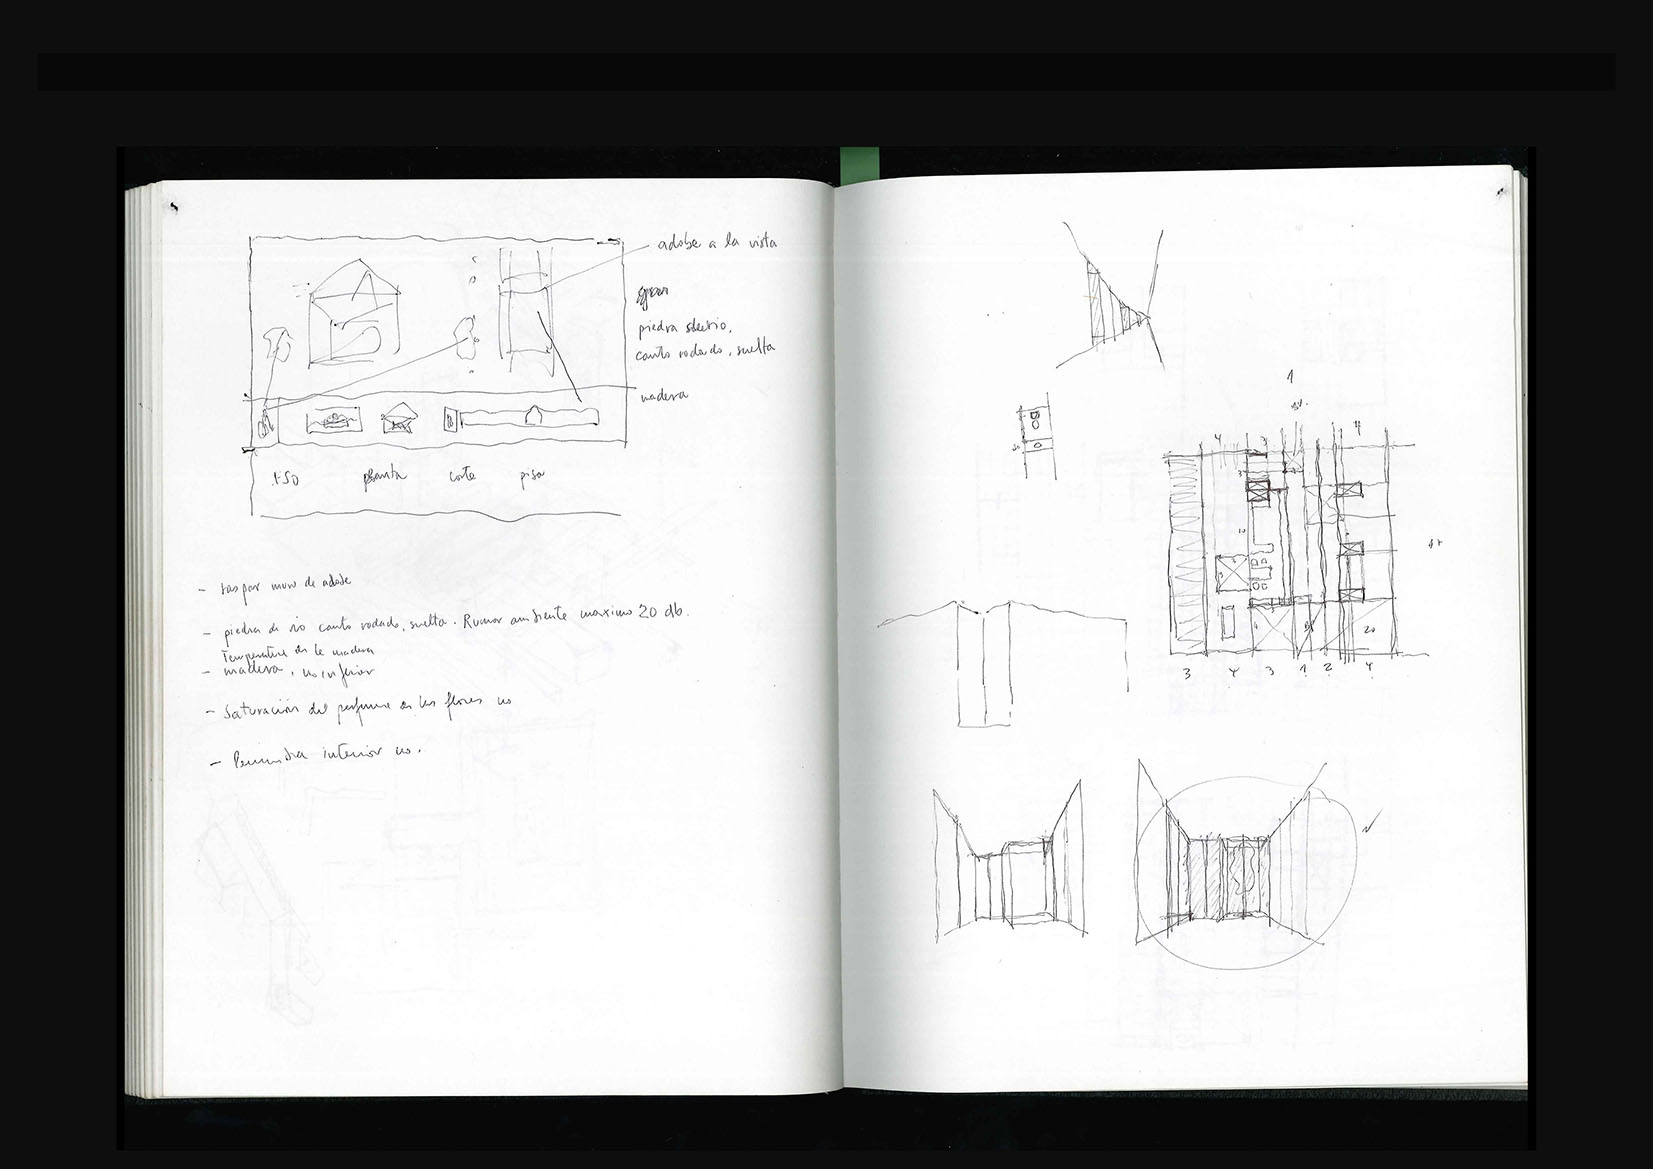 adobe a la vista
piedra
canto rodado, suelta
madera
1:50 planta corte piso
- muro de adobe
- piedra de río canto rodado, suelta. Rumor ambiente maximo 20 db.
Temperatura de la madera
- madera, no inferior
- Saturación del perfume de las flores no
- Penumbra interior no.
1
4 3 4
3
2
20
3 4 3 1 2 4